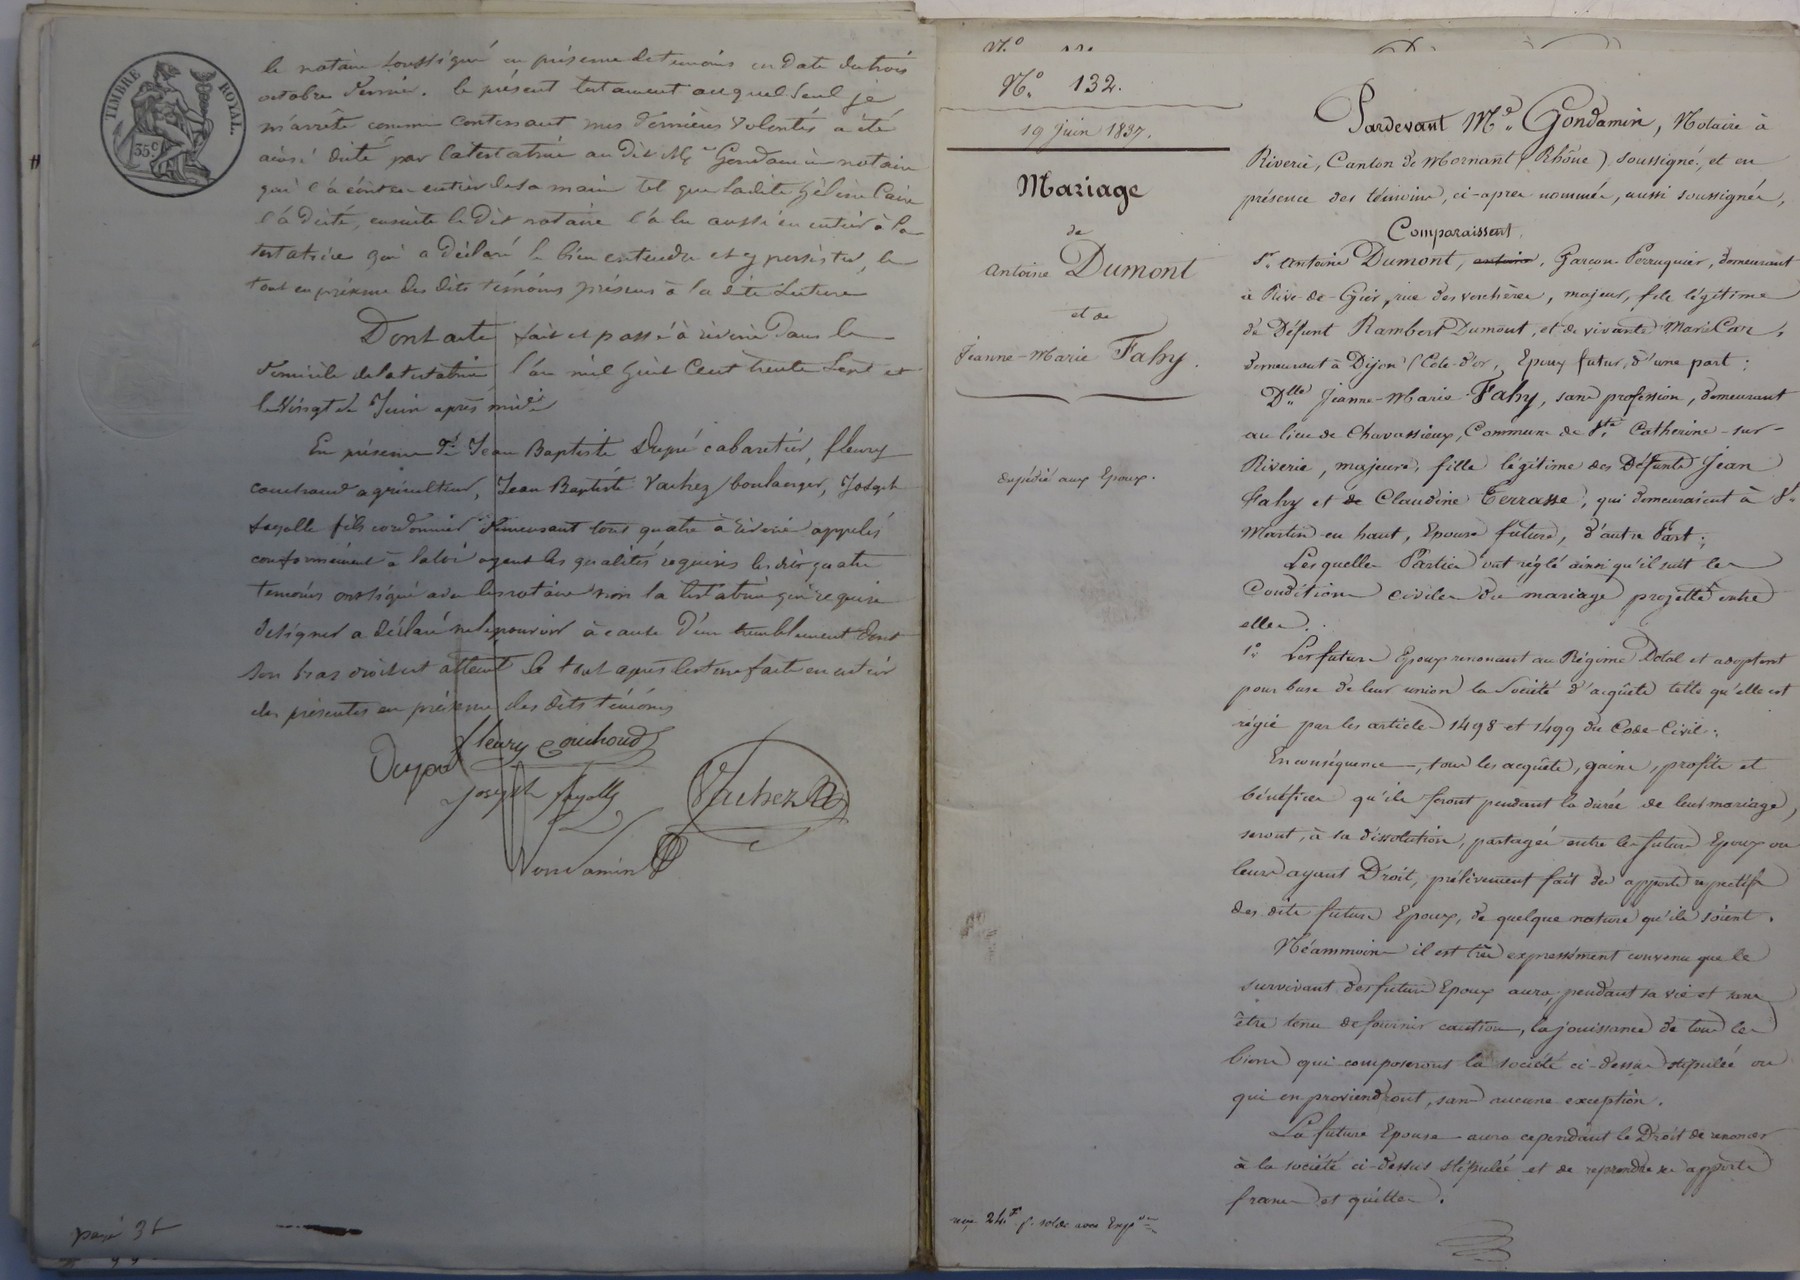 TIMBRE ROYAL.
35c
le notaire soussigné en présence de temoins en date du trois
octobre dernier. le présent testament auquel seul je
m'arrête comme contenant mes dernières volontés a été
ainsi dicté par la testatrice au dit Me Gondamin notaire
qui l'a écrit en entier de sa main tel que ladite hélène Caire
l'a dicté, ensuite le dit notaire l'a lu aussi en entier à la
testatrice qui a déclaré le bien entendre et y persister, le
tout en présence des dits témoins présens à la dite lecture
Dont acte fait et passé à riverie dans le
domicile de la testatrice l'an mil huit cent trente sept et
le vingt de Juin après midi
En présence de Jean Baptiste Dupré cabaretier, fleury
couchoud agriculteur, Jean Baptiste Vachez boulanger, Joseph
fayolle fils cordonnier demeurant tous quatre à riverie appelés
conformément à la loi ayant les qualités requises les dits quatre
temoins ont signé avec le notaire non la testatrice qui requise
de signer a déclaré ne le pouvoir à cause d'un tremblement dont
son bras droit est atteint le tout après lecture faite en entier
des présentes en présence des dits témoins
fleury Couchoud
Dupré
Joseph fayolle
Vachez
Gondamin
payé 3f
N.o
N.o 132.
19 Juin 1837.
Mariage
de
Antoine Dumont
et de
Jeanne-Marie Fahy.
expédié aux Epoux.
Pardevant Me Gondamin, Notaire à
Riverie, Canton de Mornant (Rhône) soussigné, et en
présence des témoins, ci-après nommés, aussi soussignés,
Comparaissent.
Sr. Antoine Dumont, Garçon Perruquier, demeurant
à Rive-de-Gier, rue des verchères, majeur, fils légitime
de Défunt Rambert Dumont, et de vivante Marie Car,
demeurant à Dijon (Côte-d'or, Epoux futur, d'une part:
Dlle Jeanne-Marie Fahy, sans profession, demeurant
au lieu de Chavassieux, Commune de Ste Catherine-sur-
Riverie, majeure, fille légitime des Défunts Jean
Fahy et de Claudine Terrasse, qui demeuraient à St
Martin-en haut, Epouse future, d'autre Part;
Lesquelles Parties ont réglé ainsi qu'il suit les
Conditions civiles du mariage projetté entre
elles.
1o. Les futurs Epoux renoncent au Régime Dotal et adoptent
pour base de leur union la Société d'acquêts telle qu'elle est
régie par les articles 1498 et 1499 du Code-Civil.
En conséquence, tous les acquêts, gains, profits et
bénéfices qu'ils feront pendant la durée de leur mariage,
seront, à sa dissolution, partagés entre les futurs Epoux ou
leurs ayant Droit, prélèvement fait des apports respectifs
des dits futurs Epoux, de quelque nature qu'ils soient.
Néammoins il est très expressément convenu que le
survivant des futurs Epoux aura, pendant sa vie et sans
être tenu de fournir caution, la jouissance de tous les
biens qui composeront la société ci-dessus stipulée ou
qui en proviendront, sans aucune exception.
La future Epouse aura cependant le Droit de renoncer
à la société ci-dessus stipulée et de reprendre ses apports
francs et quittes.
reçu 24f. p. solde avec Expon